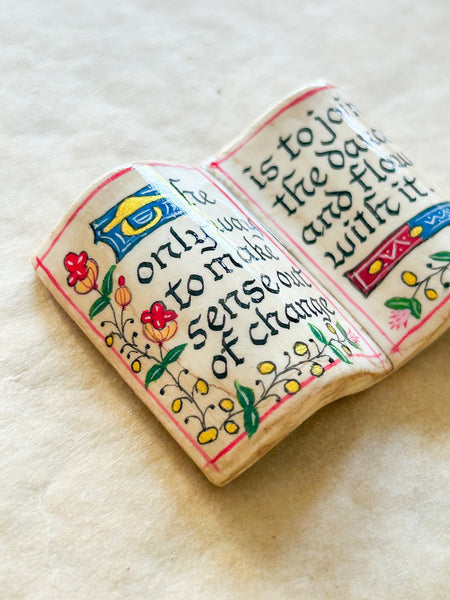 The
only way
to make
sense out
of change
is to join
the dance
and flow
with it.